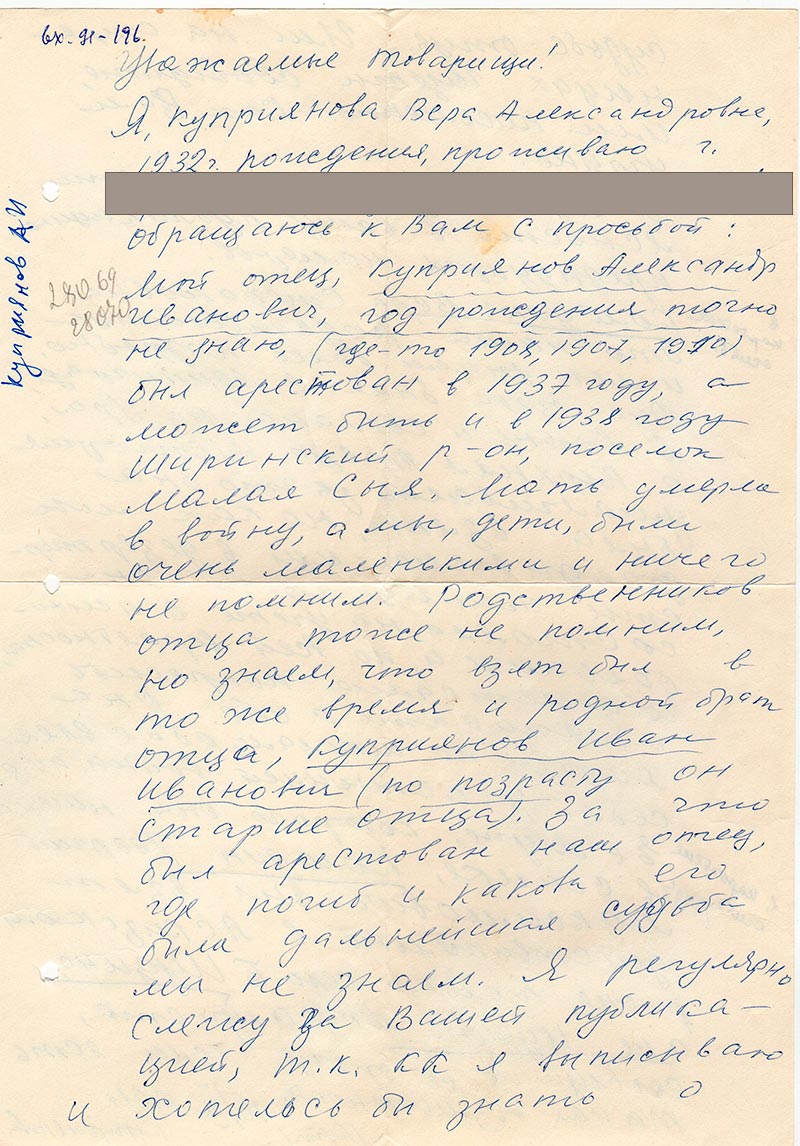 вх. 91-196.
Уважаемые товарищи!
Я, Куприянова Вера Александровна,
1932г. рождения, проживаю г.
обращаюсь к Вам с просьбой:
Мой отец, Куприянов Александр
Иванович, год рождения точно
не знаю, (где-то 1908, 1907, 1910)
был арестован в 1937 году, а
может быть и в 1938 году
Ширинский р-он, поселок
Малая Сыя. Мать умерла
в войну, а мы, дети, были
очень маленькими и ничего
не помним. Родственников
отца тоже не помним,
но знаем, что взят был в
то же время и родной брат
отца, Куприянов Иван
Иванович (по возрасту он
старше отца). За что
был арестован наш отец,
где погиб и какова его
была дальнейшая судьба
мы не знаем. Я регулярно
слежу за Вашей публика-
цией, т.к. КК я выписываю
и хотелось бы знать о
Куприянов АИ
28069
28070